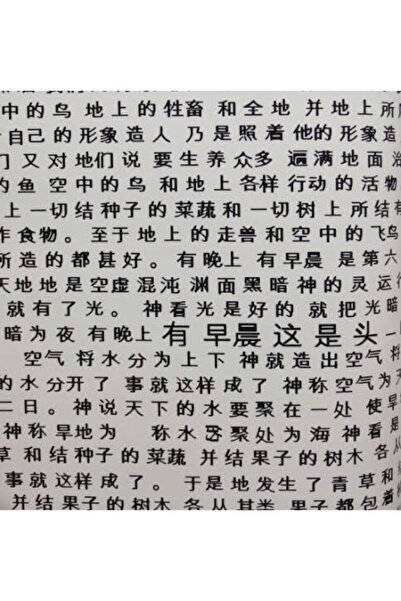 空中的鸟 地上的牲畜 和全地 并地上所
自己的形象造人 乃是照着他的形象造
们 又对地们说 要生养众多 遍满地面治
的鱼 空中的鸟 和地上各样行动的活物
上一切结种子的菜蔬和一切树上所结有
作食物。至于地上的走兽和空中的飞鸟
所造的都甚好。有晚上 有早晨 是第六
天地地是空虚混沌 渊面黑暗神的灵运行
就有了光。神看光是好的 就把光暗
暗为夜 有晚上有早晨这是头一
空气 将水分为上下 神就造出空气 将
的水分开了 事就这样成了 神称空气为天
二日。神说天下的水要聚在一处 使旱
神称旱地为 称水的聚处为海 神看是
草和结种子的菜蔬 并结果子的树木 各从
事就这样成了。于是地发生了青草和
并结果子的树木 各从其类 果子都包着